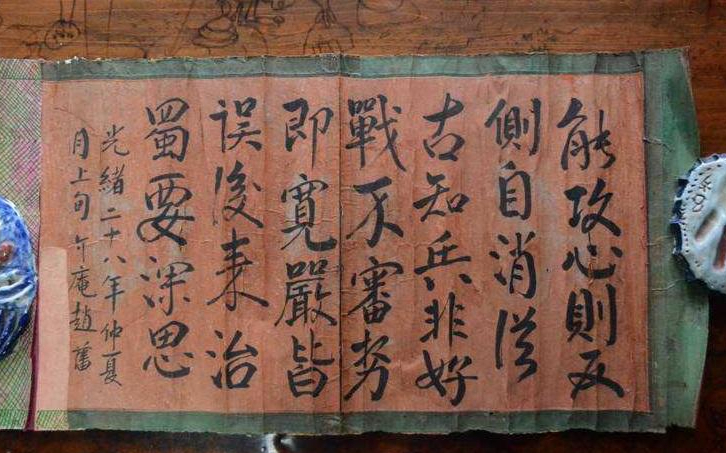 能攻心則反
側自消從
古知兵非好
戰不審势
即寬嚴皆
误後来治
蜀要深思
光緒二十八年仲夏
月上旬 介庵趙藩